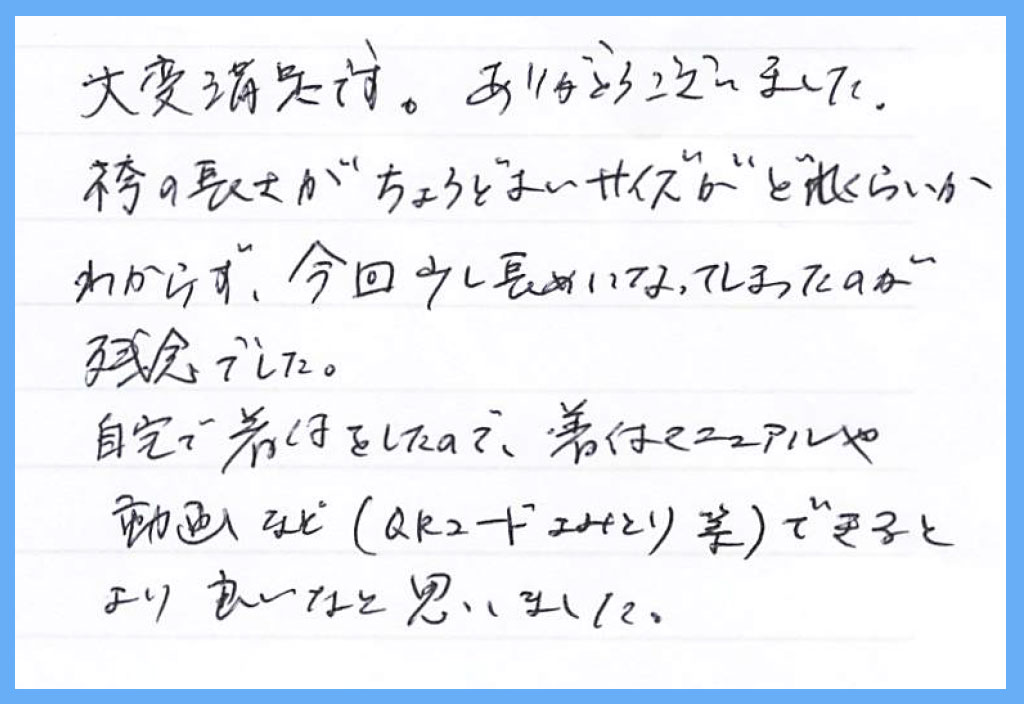 大変満足です。ありがとうございました。
袴の長さがちょうどよいサイズがどれくらいか
わからず、今回少し長めになってしまったのが
残念でした。
自宅で着付をしたので、着付マニュアルや
動画など(QRコードよみとり等)できると
より良いなと思いました。